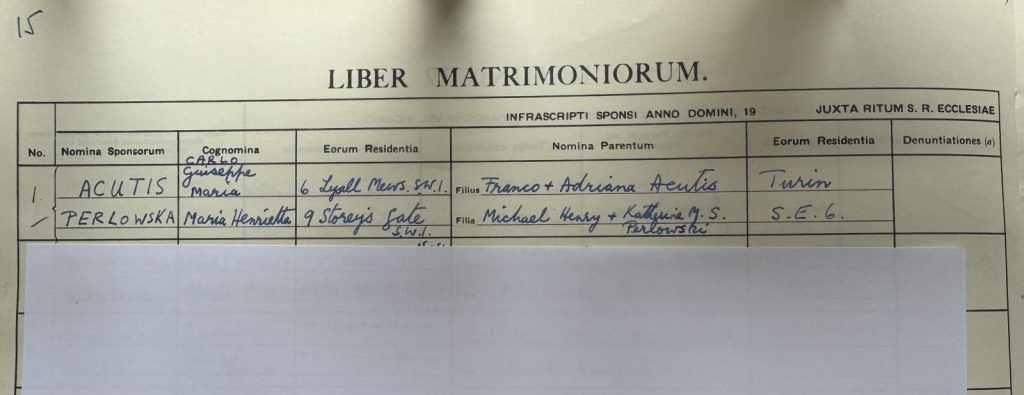 15
LIBER MATRIMONIORUM.
INFRASCRIPTI SPONSI ANNO DOMINI, 19 JUXTA RITUM S. R. ECCLESIAE
No. Nomina Sponsorum Cognomina Eorum Residentia Nomina Parentum Eorum Residentia Denuntiationes (a)
CARLO
Guiseppe
1. ACUTIS Maria 6 Lyall Mews. S.W.1. Filius Franco + Adriana Acutis Turin
PERLOWSKA Maria Henrietta 9 Storey's Gate Filia Michael Henry + Katherine M. S. S.E.6.
S.W.1. Perlowski